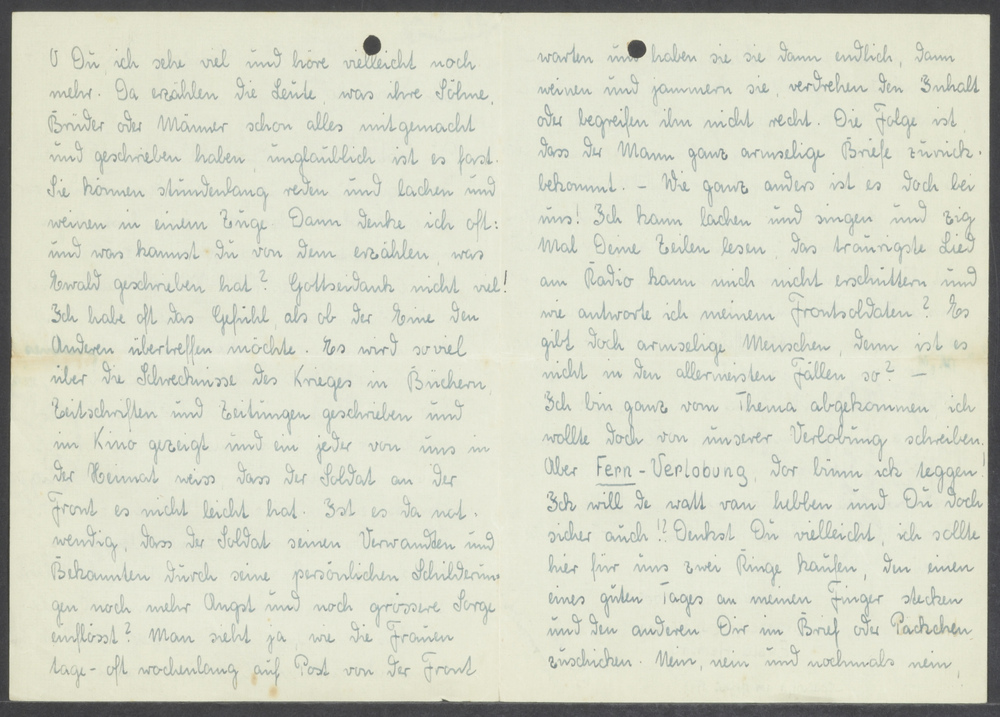 O Du, ich sehe viel und höre vielleicht noch
mehr. Da erzählen die Leute, was ihre Söhne,
Brüder oder Männer schon alles mitgemacht
und geschrieben haben, unglaublich ist es fast.
Sie können stundenlang reden und lachen und
weinen in einem Zuge. Dann denke ich oft:
und was kannst Du von dem erzählen, was
Ewald geschrieben hat? Gottseidank nicht viel!
Ich habe oft das Gefühl, als ob der Eine den
Anderen übertreffen möchte. Es wird soviel
über die Schrecknisse des Krieges in Büchern,
Zeitschriften und Zeitungen geschrieben und
im Kino gezeigt und ein jeder von uns in
der Heimat weiss dass der Soldat an der
Front es nicht leicht hat. Ist es da not-
wendig, dass der Soldat seinen Verwandten und
Bekannten durch seine persönlichen Schilderun-
gen noch mehr Angst und noch grössere Sorge
einflösst? Man sieht ja, wie die Frauen
tage- oft wochenlang auf Post von der Front
warten und haben sie sie dann endlich, dann
weinen und jammern sie, verdrehen den Inhalt
oder begreifen ihn nicht recht. Die Folge ist,
dass der Mann ganz armselige Briefe zurück-
bekommt. - Wie ganz anders ist es doch bei
uns! Ich kann lachen und singen und zig
Mal Deine Zeilen lesen, das traurigste Lied
am Radio kann mich nicht erschüttern und
wie antworte ich meinem Frontsoldaten? Es
gibt doch armselige Menschen, denn ist es
nicht in den allermeisten Fällen so? -
Ich bin ganz vom Thema abgekommen, ich
wollte doch von unserer Verlobung schreiben.
Aber Fern-Verlobung, dor bünn ick teggen!
Ick will de watt van hebben und Du doch
sicher auch!? Denkst Du vielleicht, ich sollte
hier für uns zwei Ringe kaufen, den einen
eines guten Tages an meinen Finger stecken
und den anderen Dir im Brief oder Päckchen
zuschicken. Nein, nein und nochmals nein,